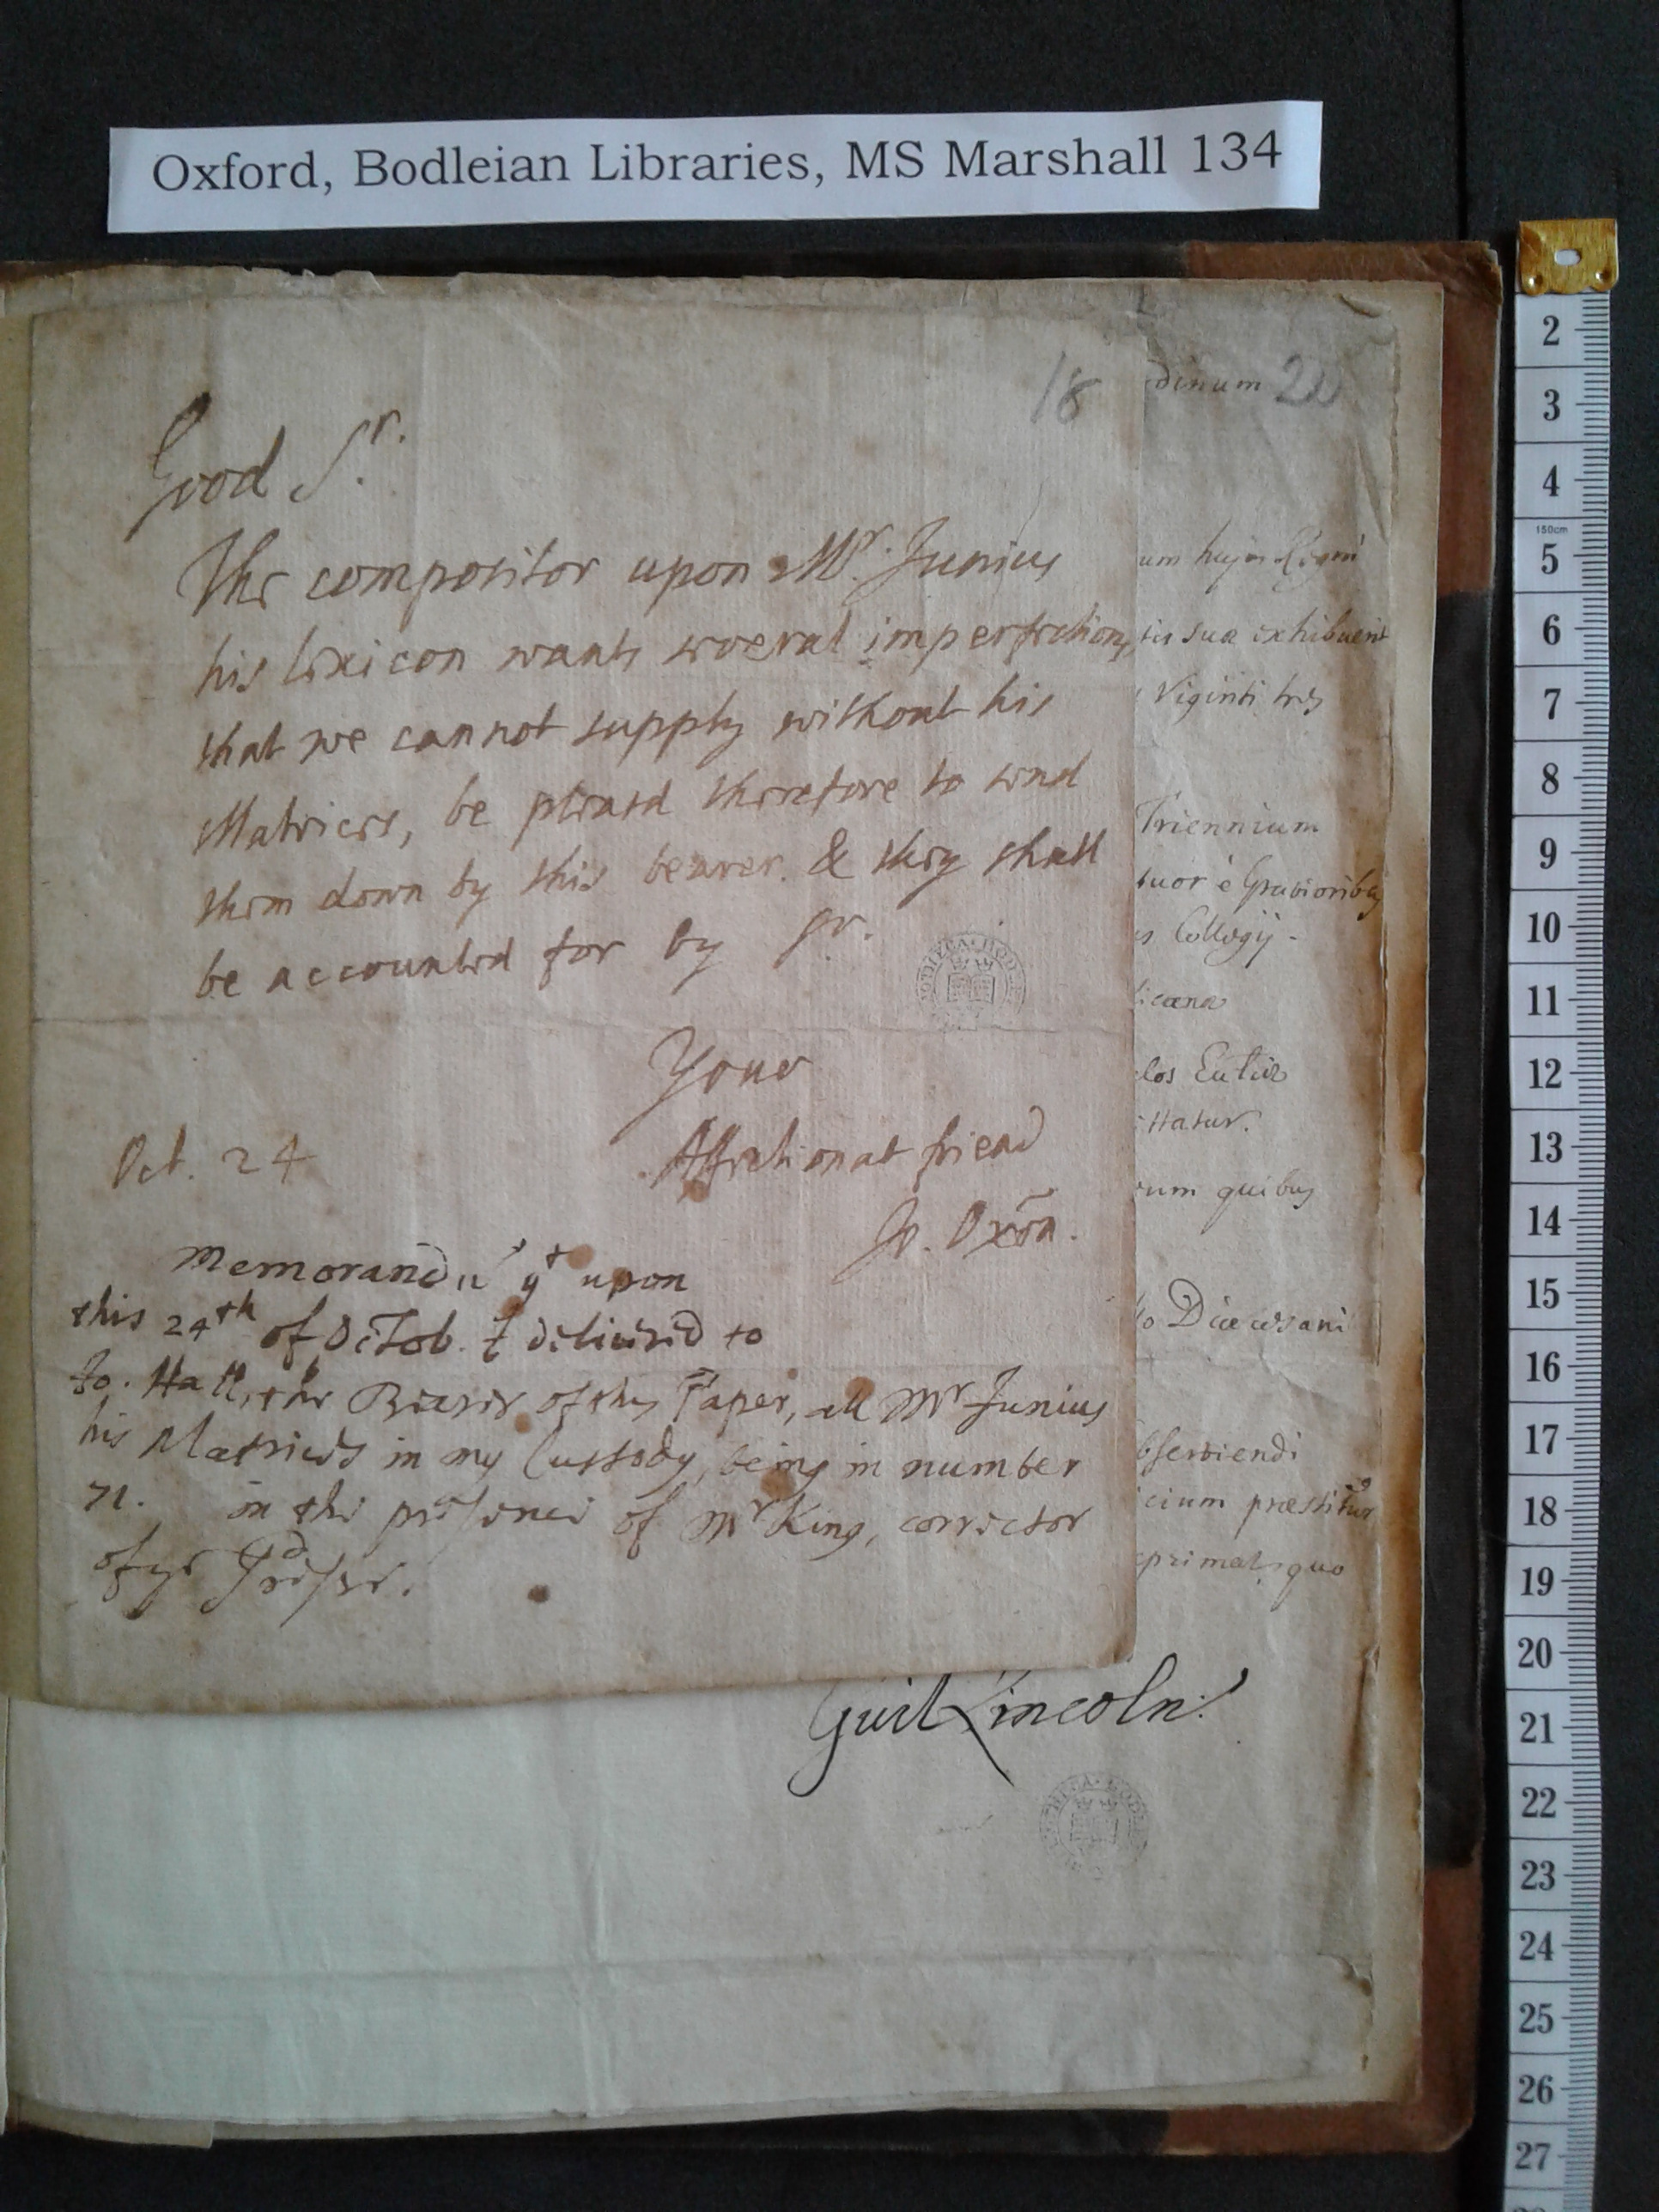 Oxford, Bodleian Libraries, MS Marshall 134
18
Good Sr.
The compositor upon Mr. Junius
his Lexicon wants several imperfections,
that we cannot supply without his
Matrices, be pleasd therefore to send
them down by this bearer. & they shall
be accounted for by Sr.
Your
Affectionat friend
Jo. Oxōn.
Oct. 24
Memorand yt upon
this 24th of Octob. I delivered to
Jo. Hall, the Bearer of this Paper, all Mr Junius
his Matrices in my Custody, being in number
71. in the presence of Mr King, corrector
of ye Presse.
dinum 20
um hujus Regni
sua exhibuerit
Viginti tres
Triennium
tuor è Gravioribus
s Collegij -
licana
ittatur.
rum quibus
Diœcesani
bserviendi
cium præstitur
eprimat, quo
Guil Lincoln:
2
3
4
150cm
5
6
7
8
9
10
11
12
13
14
15
16
17
18
19
20
21
22
23
24
25
26
27